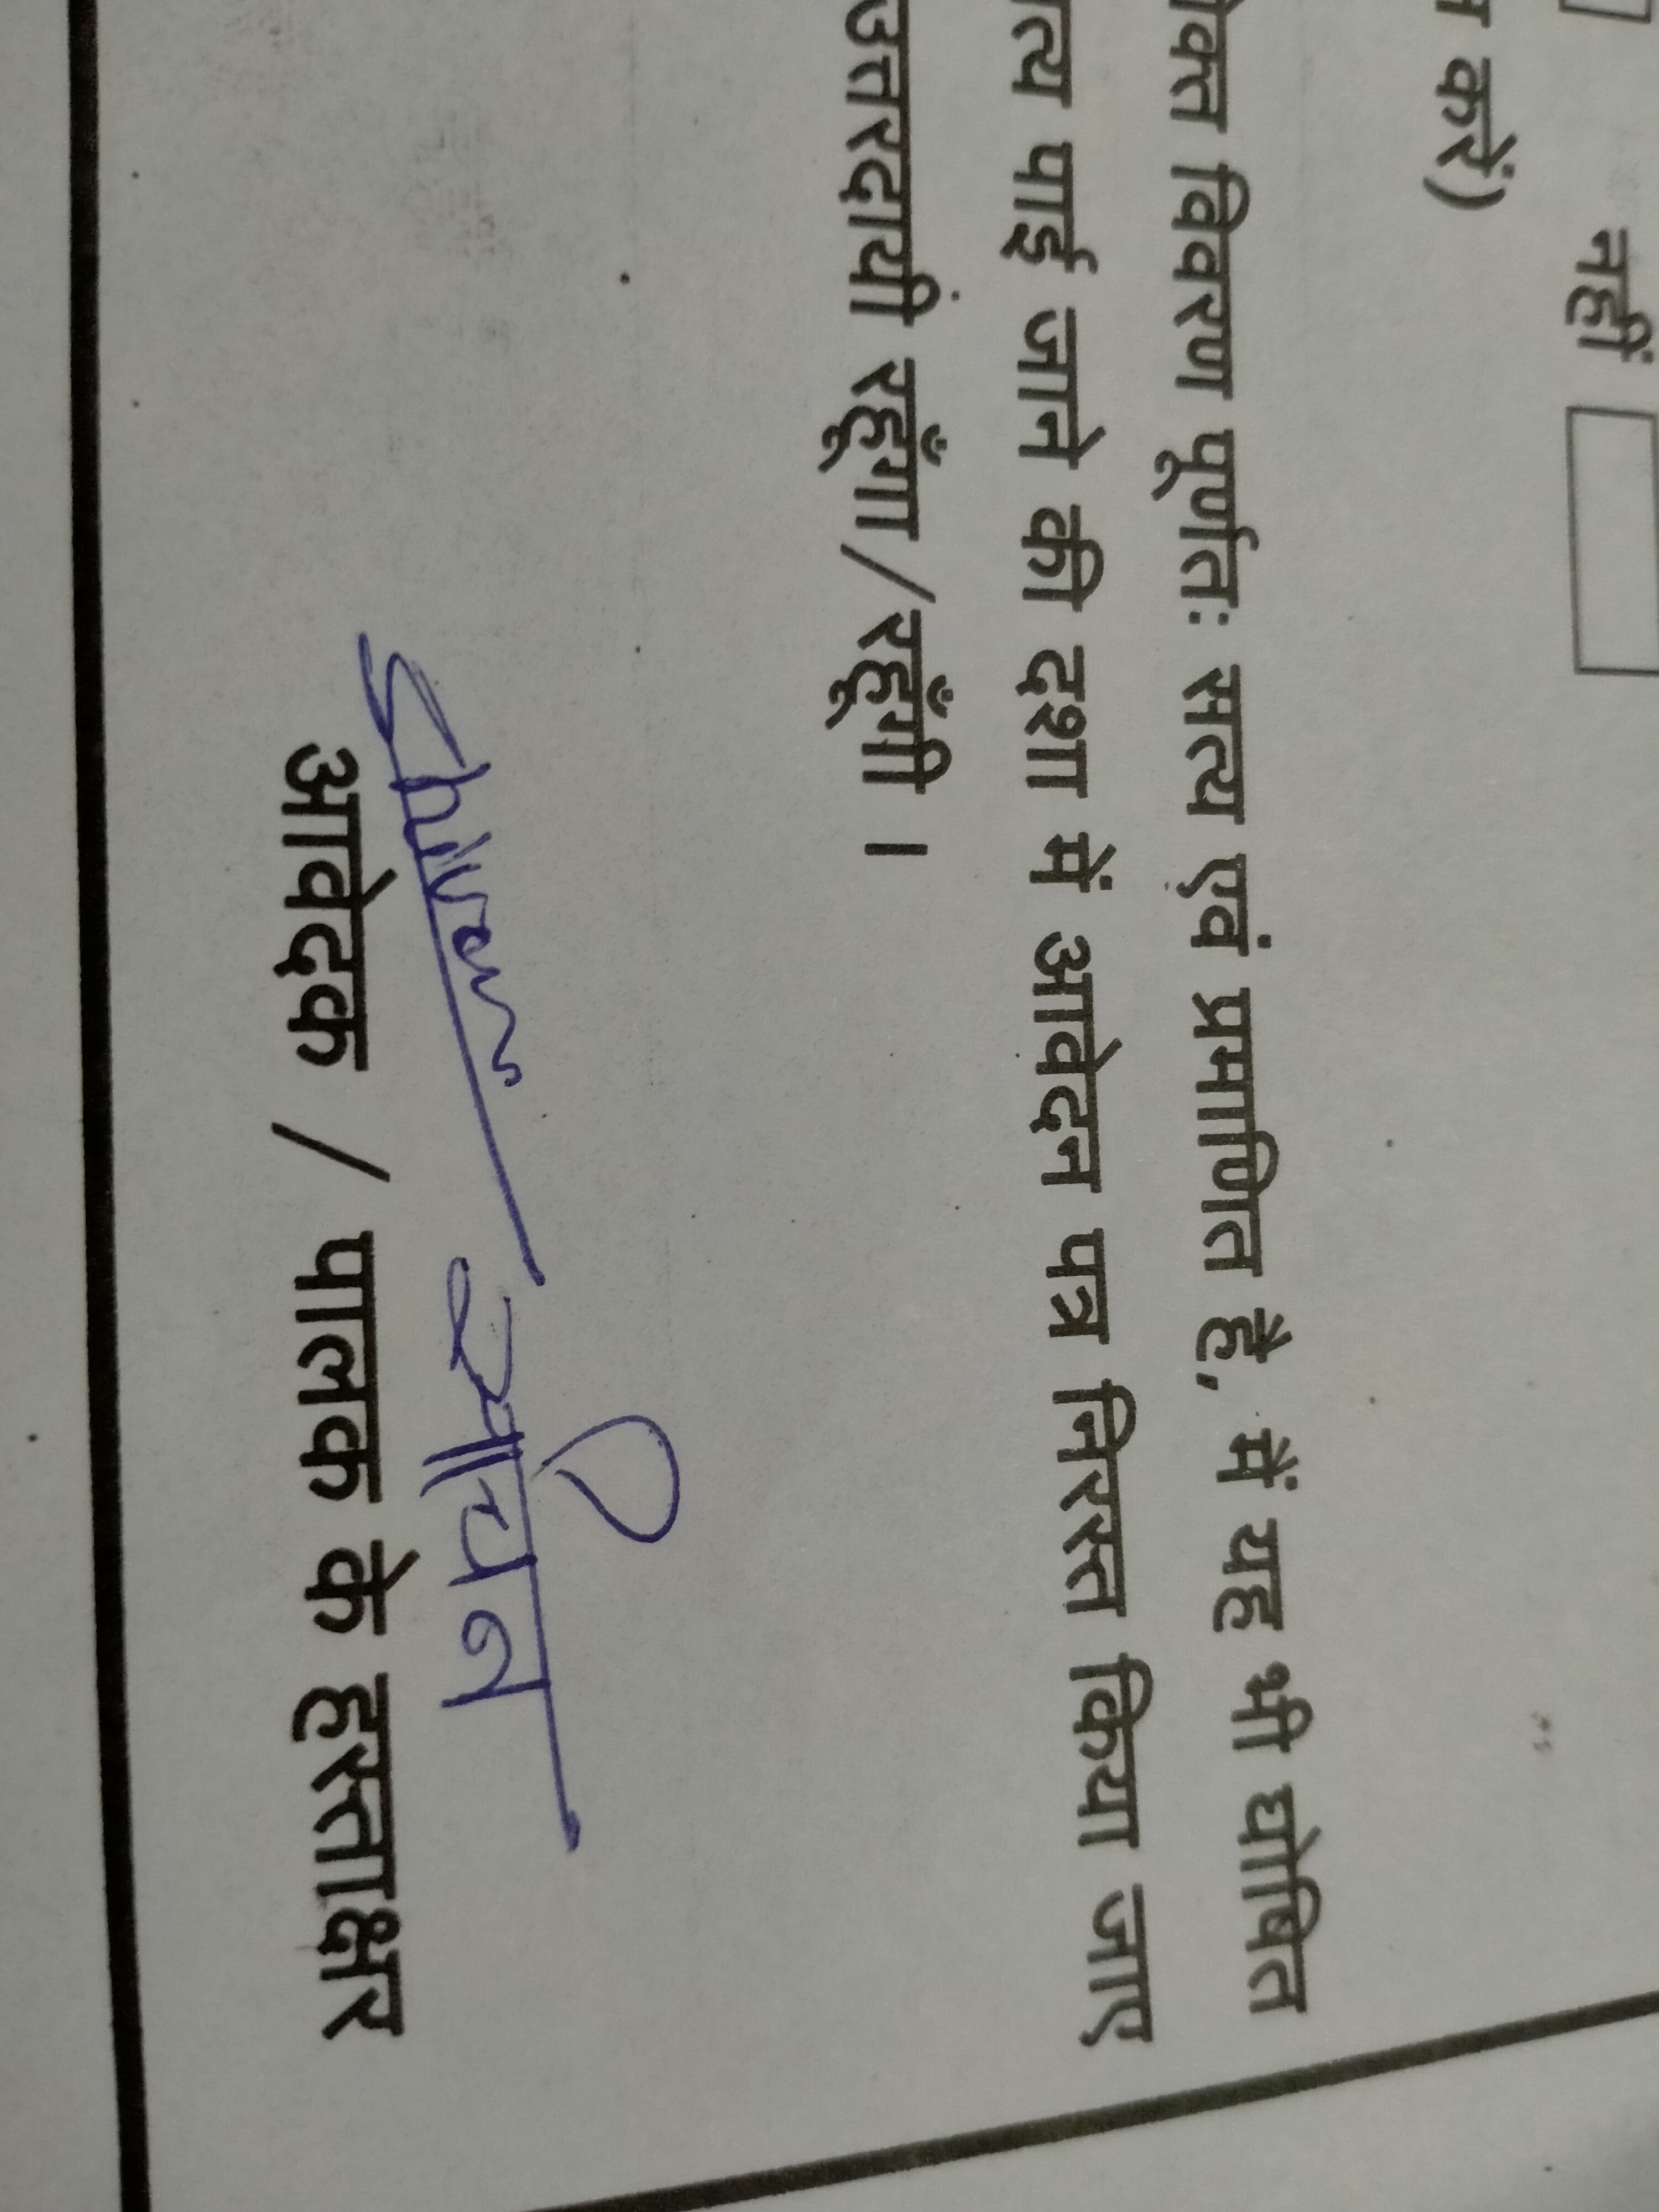 नहीं
करें)
विवरण पूर्णतः सत्य एवं प्रमाणित है, मैं यह भी घोषित
पाई जाने की दशा में आवेदन पत्र निरस्त किया जाए
उत्तरदायी रहूँगा/रहूँगी ।
आवेदक / पालक के हस्ताक्षर